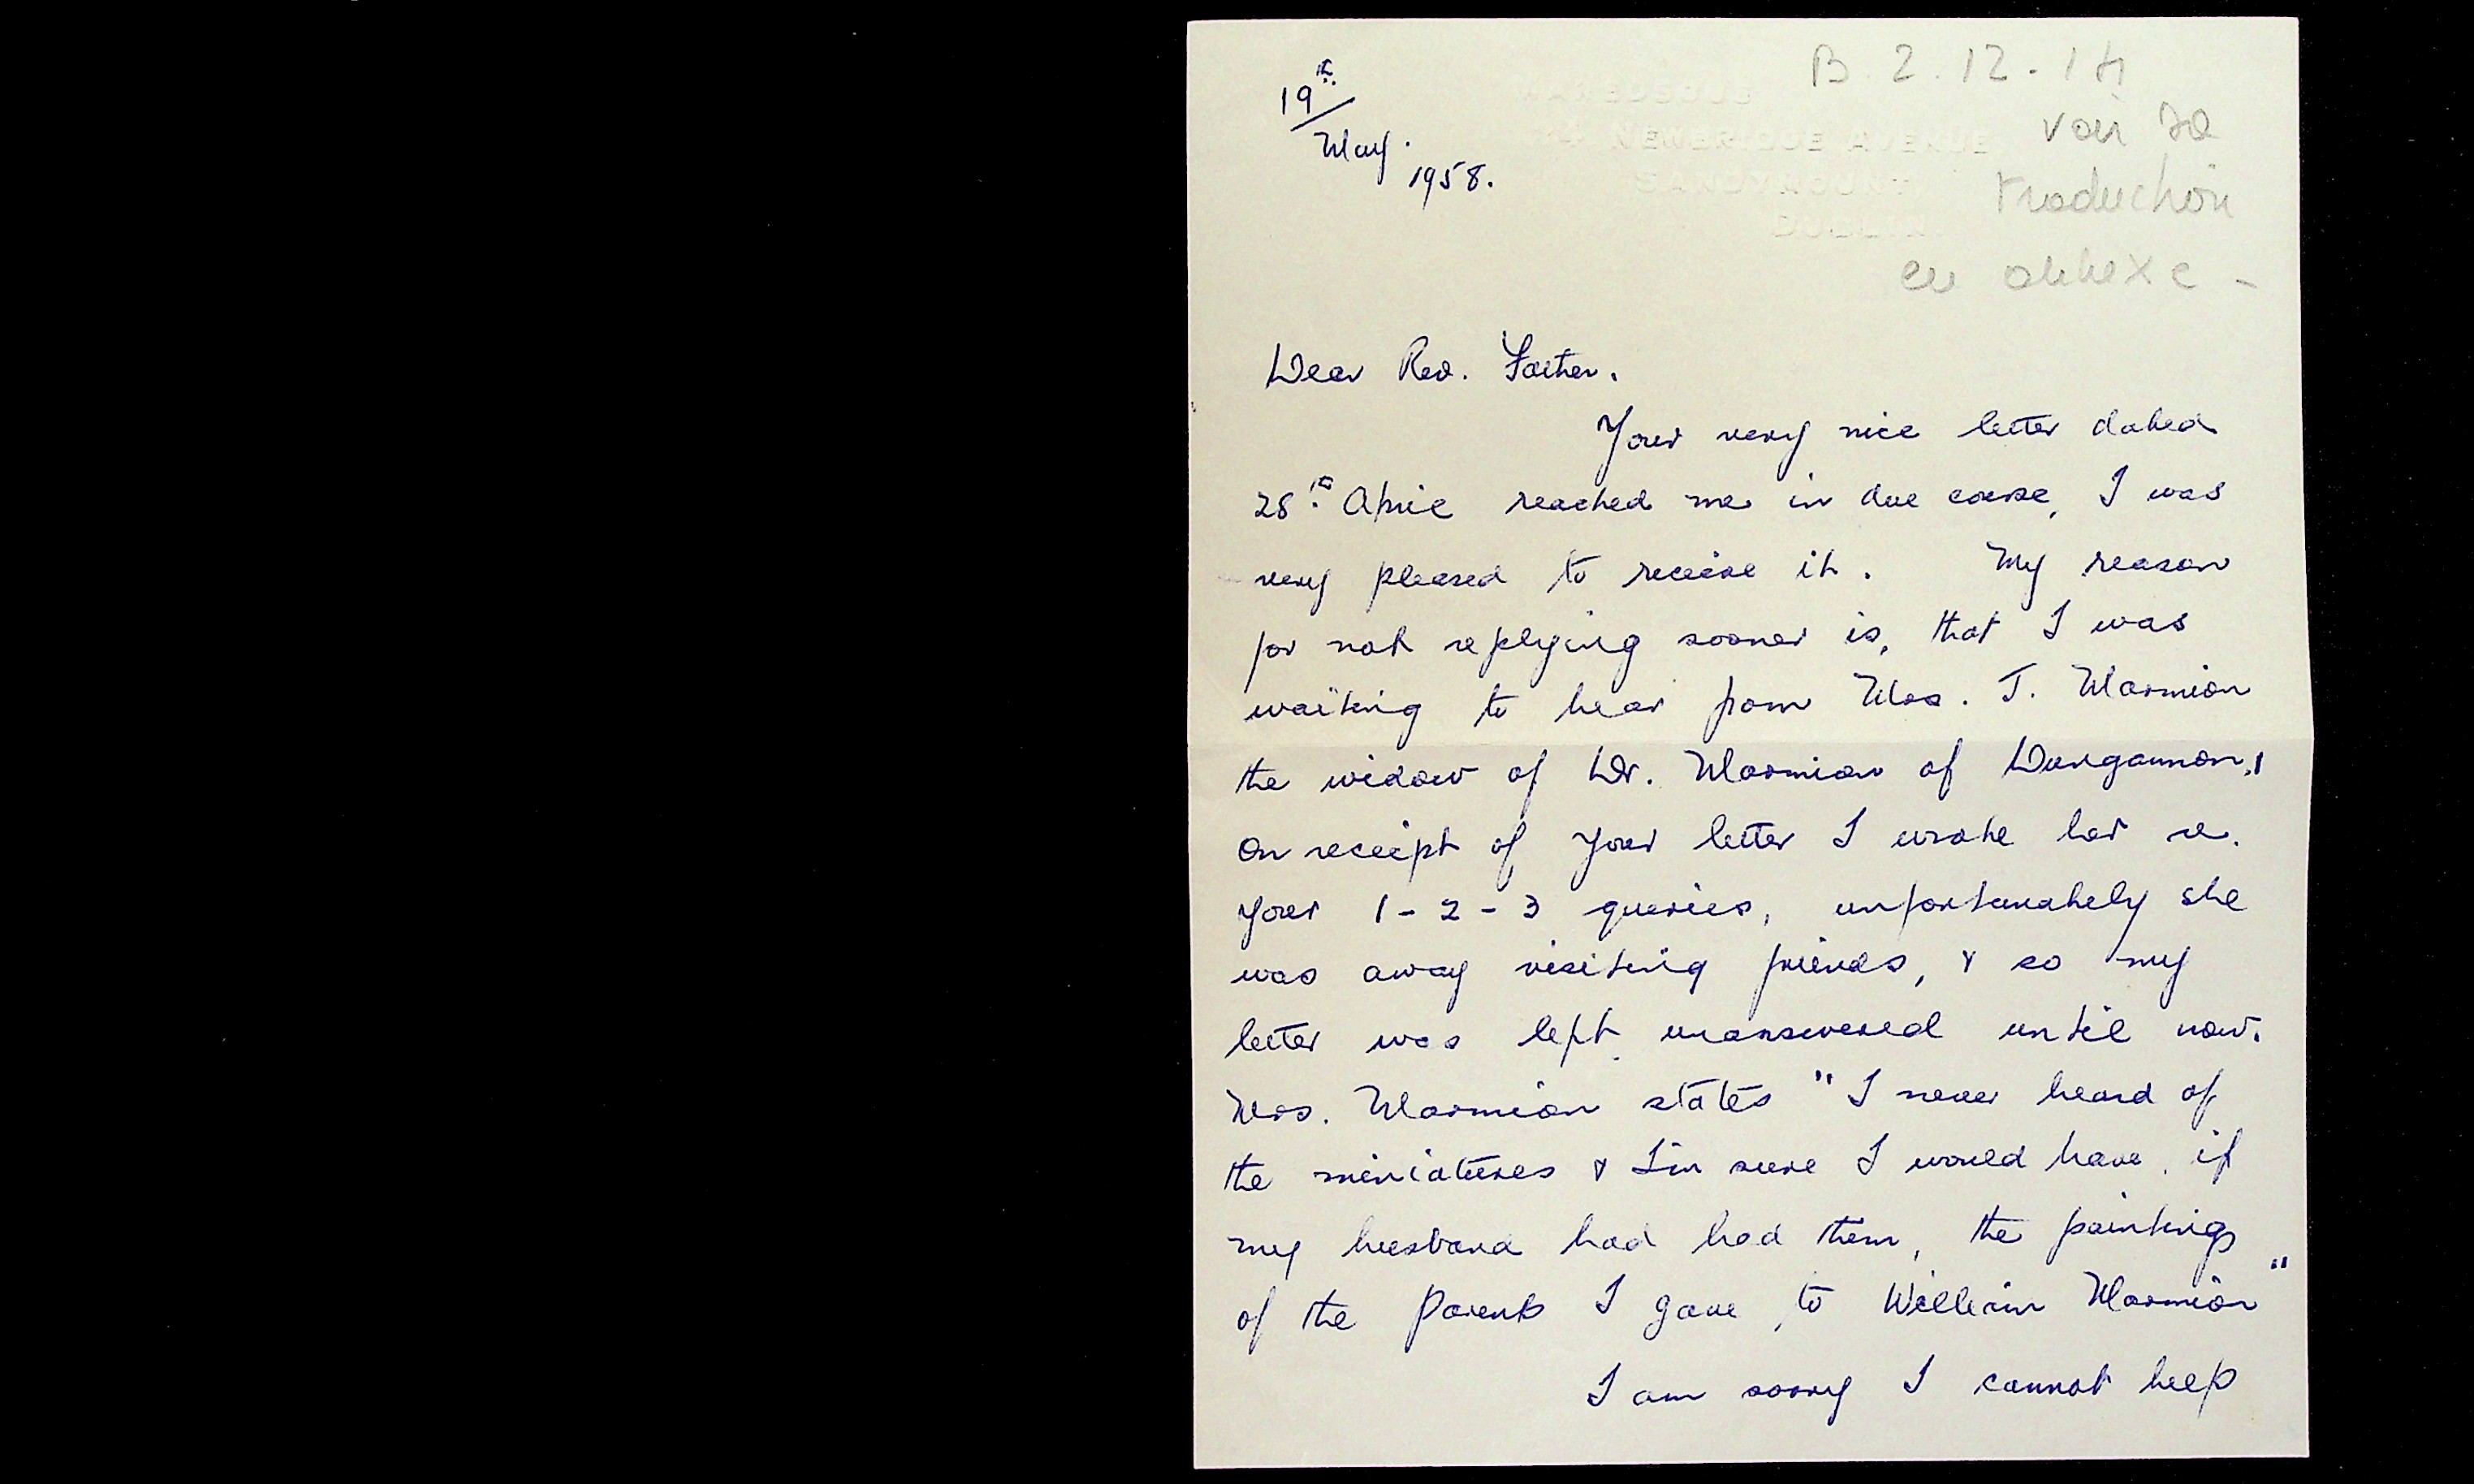 19th
May.
1958.
B. 2.12.14
NEWBRIDGE AVENUE
SANDYMOUNT
DUBLIN.
voir
traduction
en annexe -
Dear Rev. Father.
Your very nice letter dated
28th April reached me in due course, I was
very pleased to receive it. My reason
for not replying sooner is, that I was
waiting to hear from Mrs. J. Marmion
the widow of Dr. Marmion of Dungannon,
On receipt of your letter I wrote her re.
your 1-2-3 queries, unfortunately she
was away visiting friends, & so my
letter was left unanswered until now.
Mrs. Marmion states "I never heard of
the miniatures & I'm sure I would have, if
my husband had had them, the paintings
of the Parents I gave to William Marmion"
I am sorry I cannot help